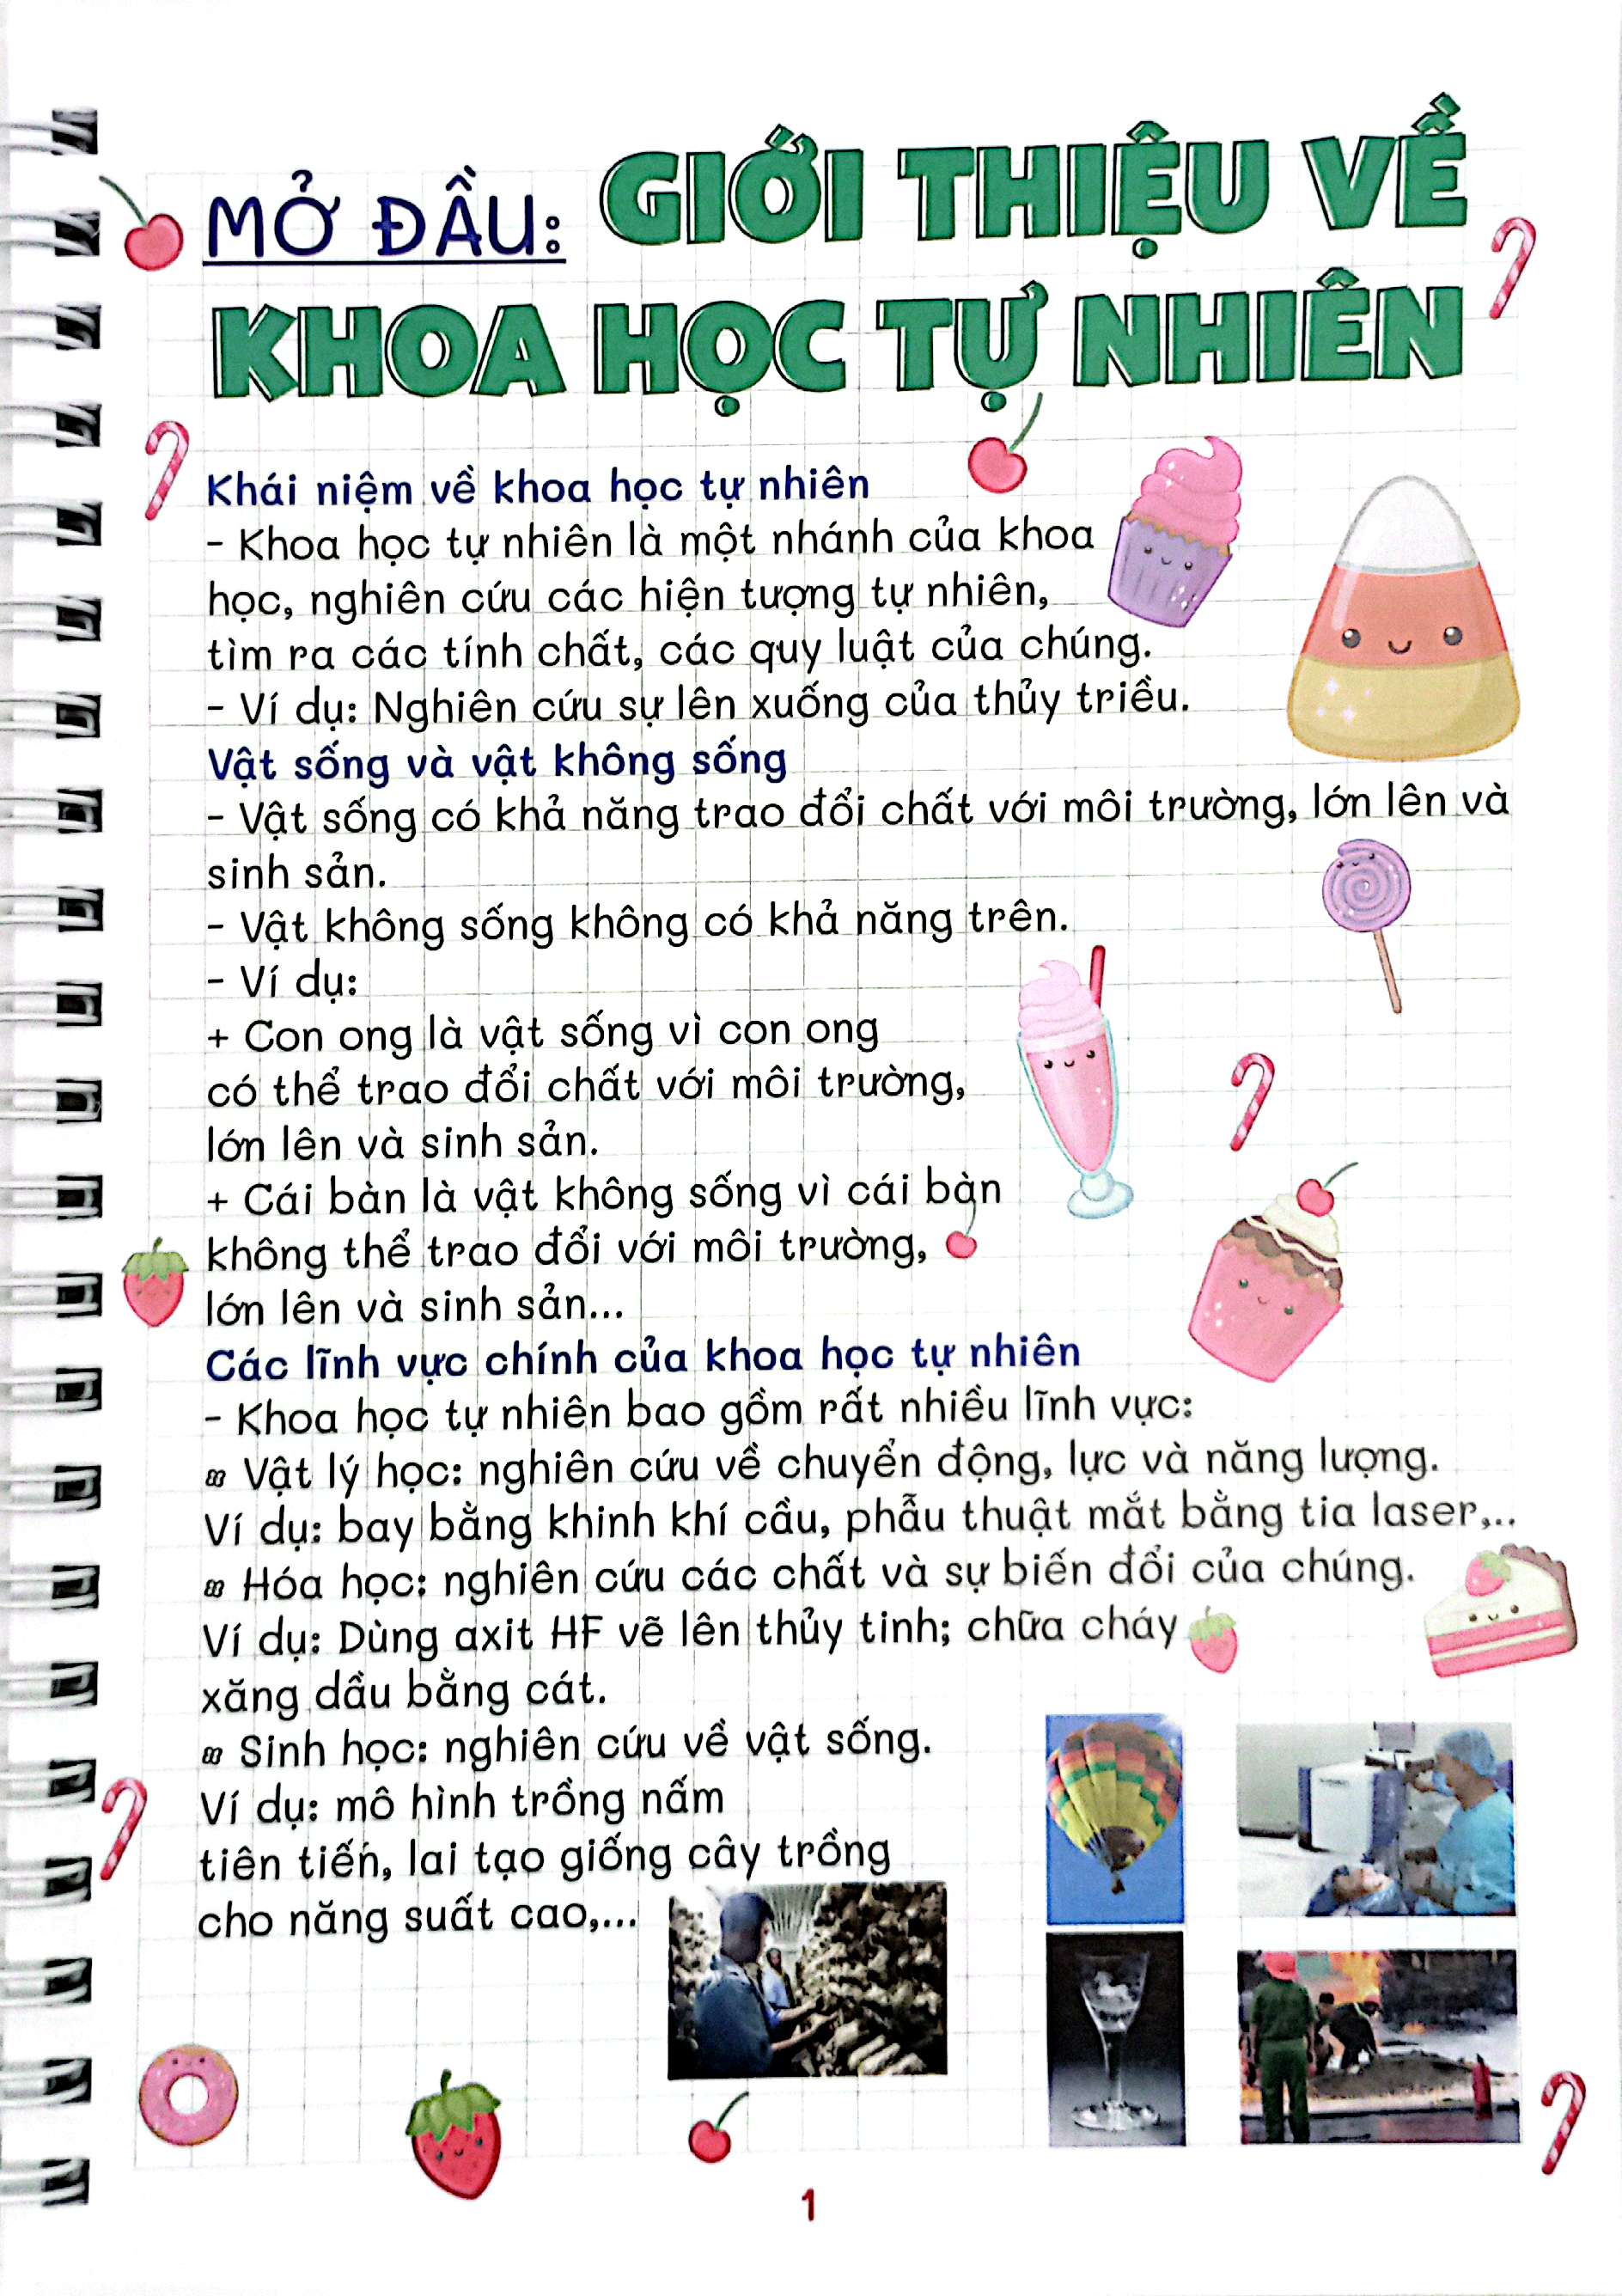 MỞ ĐẦU: GIỚI THIỆU VỀ
KHOA HỌC TỰ NHIÊN
Khái niệm về khoa học tự nhiên
- Khoa học tự nhiên là một nhánh của khoa
học, nghiên cứu các hiện tượng tự nhiên,
tìm ra các tính chất, các quy luật của chúng.
- Ví dụ: Nghiên cứu sự lên xuống của thủy triều.
Vật sống và vật không sống
- Vật sống có khả năng trao đổi chất với môi trường, lớn lên và
sinh sản.
- Vật không sống không có khả năng trên.
- Ví dụ:
+ Con ong là vật sống vì con ong
có thể trao đổi chất với môi trường,
lớn lên và sinh sản.
+ Cái bàn là vật không sống vì cái bàn
không thể trao đổi với môi trường,
lớn lên và sinh sản...
Các lĩnh vực chính của khoa học tự nhiên
- Khoa học tự nhiên bao gồm rất nhiều lĩnh vực:
Vật lý học: nghiên cứu về chuyển động, lực và năng lượng.
Ví dụ: bay bằng khinh khí cầu, phẫu thuật mắt bằng tia laser,..
Hóa học: nghiên cứu các chất và sự biến đổi của chúng.
Ví dụ: Dùng axit HF vẽ lên thủy tinh; chữa cháy
xăng dầu bằng cát.
Sinh học: nghiên cứu về vật sống.
Ví dụ: mô hình trồng nấm
tiên tiến, lai tạo giống cây trồng
cho năng suất cao,...
1